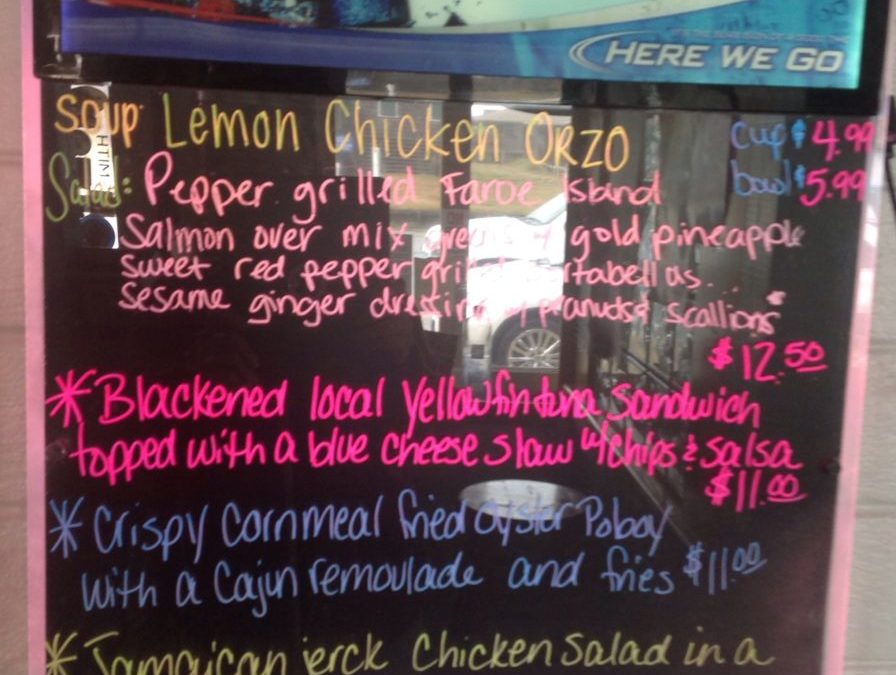 HERE WE GO
Soup Lemon Chicken Orzo cup $4.99
Salad: Pepper grilled Faroe Island bowl $5.99
Salmon over mix greens w/ gold pineapple
sweet red pepper grilled portabellas...
Sesame ginger dressing w/ peanuts & scallions
$12.50
*Blackened local yellowfin tuna sandwich
topped with a blue cheese slaw w/ chips & salsa
$11.00
*Crispy cornmeal fried oyster Poboy
with a Cajun remoulade and fries $11.00
*Jamaican jerck Chicken Salad in a